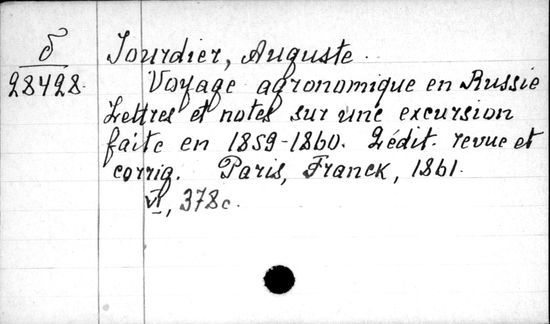 б
28428
Jourdier, Auguste.
Voyage agronomique en Russie
Lettres et notes sur une excursion
faite en 1859-1860. 2 édit. revue et
corrig. Paris, Franck, 1861.
VI, 378 c.